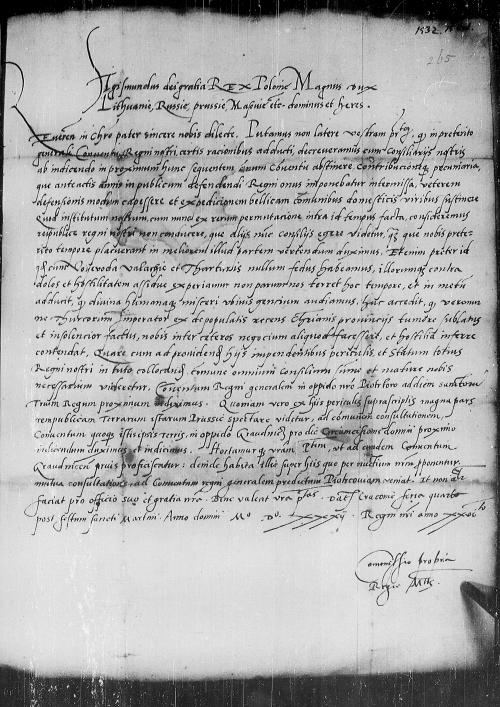 1532
265
Sigismundus dei gratia REX Polonie Magnus dux
Lithuanie, Russie, prussie, Masovie etc. dominus et heres.
Reveren in Chro pater syncere nobis dilecte. Putamus non latere vestram ptem, qd in preterito
generali Conventu Regni nostri certis racionibus adducti, decreveramus cum Consiliarijs nostris
ab indicendo in proximum hunc sequentem annum Conventu abstinere Contribucioneque pecuniaria,
que anteactis annis in publicum defendendi Regni onus imponebatur intermissa, veterem
defensionis modum capessere et expedicionem bellicam communibus domesticis viribus sustinere
Quod institutum nostrum, cum nunc ex rerum permutatione intra id tempus facta, consideremus
reipublice regni nostri non conducere, que alijs nunc consilijs egere videtur, qz que nobis prete-
rito tempore placuerant in meliorem illud partem vertendum duximus. Etenim preter id
qd cum Voievoda Valachie et Thartaris nullum fedus habeamus, illorumque contra
dolos et hostilitatem assidue experiamur non parum nos terret hoc tempore, et in metum
adducit, qd divina humanaque misceri ubivis gencium audiamus, huic accedit, qd
Thurcorum Imperator ex depopulatis recens Christianis provincijs tumore sublatus
et insolencior factus, nobis inter ceteros negocium aliquod facessere, et hostilia inferre
contendat. Quare cum ad providendum hijs impendentibus periculis, et Statum totius
Regni nostri in tuto collocandum comune omnium consilium sumo et mature nobis
necessarium videretur, Conventum Regni generalem in oppido nro Piotrkow ad diem sanctorum
Trium Regum proximum indiximus. Quoniam vero ex hijs periculis suprascriptis magna pars
rempublicam Terrarum istarum Prussie spectare videtur, ad comunem consultationem,
Conventum quoque istiusce terris, in oppido Graudnicz pro die Circumcisione domini proximo
indicendum duximus et indicimus. Hortamur vram Ptem, ut ad eundem Conventum
Graudnicen prius proficiscatur: deinde habita illic super hijs que per nuncium nrm proponentur,
mutua consultatione, ad Conventum regni generalem predictum Piotrcovian veniat. Et non aliter
faciat pro officio suo et gratia nra. Bene valeat vra ptas. Dat Cracovie feria quarta
post festum sancti Martini. Anno domini Mo Do xxxij Regni nri anno xxvito
Comissio propria
Regie Mtis